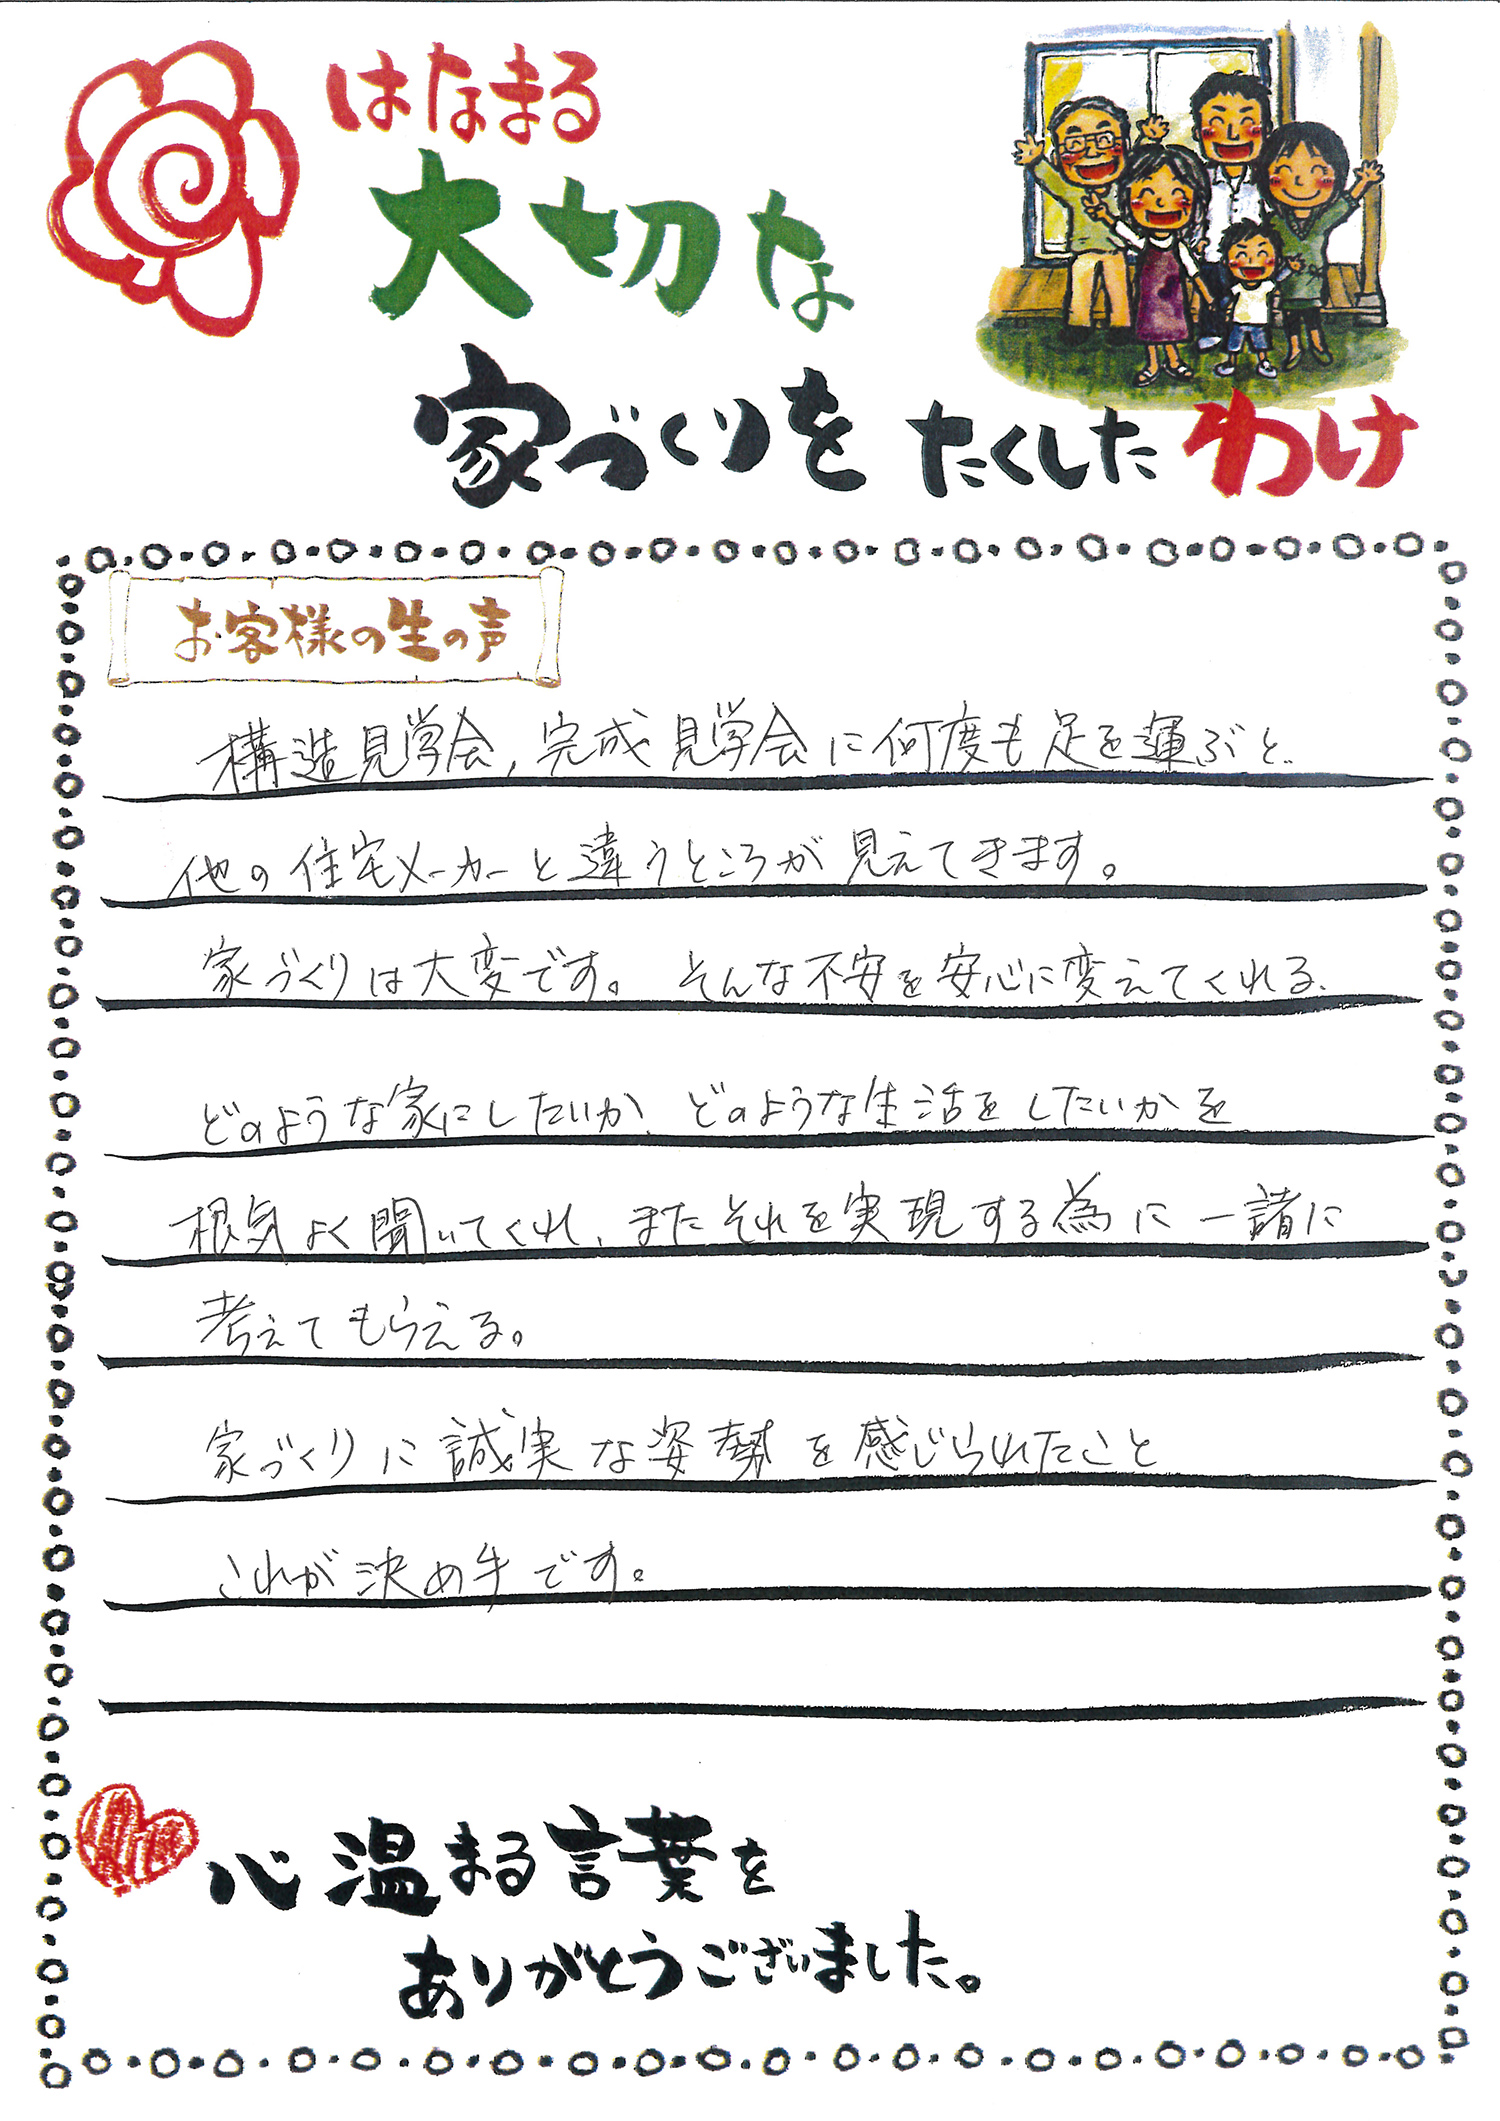 はなまる
大切な
家づくりをたくしたわけ
お客様の生の声
構造見学会,完成見学会に何度も足を運ぶと、
他の住宅メーカーと違うところが見えてきます。
家づくりは大変です。そんな不安を安心に変えてくれる、
どのような家にしたいか、どのような生活をしたいかを
根気よく聞いてくれ、またそれを実現する為に一諸に
考えてもらえる。
家づくりに誠実な姿勢を感じられたこと
これが決め手です。
心温まる言葉を
ありがとうございました。